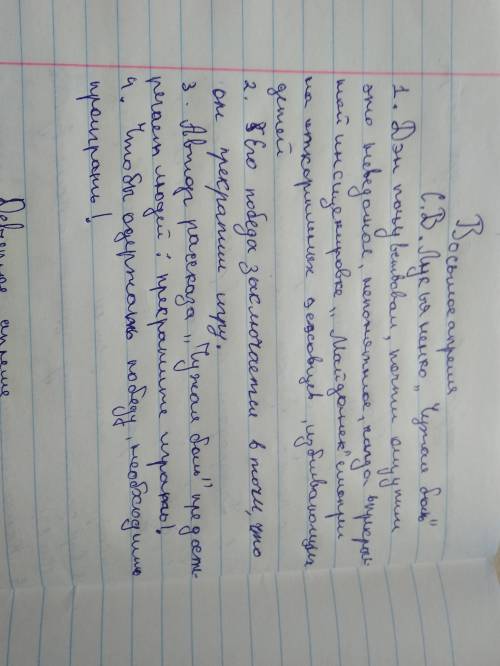 Восьмое апреля
С.В. Лукьяненко „Чужая боль"
1. Дэн почувствовал, почти ощутил
это неведомое, непонятное, когда в прекрас-
ной инсценировке „Майданек" смотрел
на откормленных эсэсовцев, избивающих
детей
2. Его победа заключается в том, что
он прекратил игру.
3. Автор рассказа „Чужая боль" предосте-
регает людей: прекратите играть!
4. Чтобы одержать победу, необходимо
проиграть!
Девятое апреля